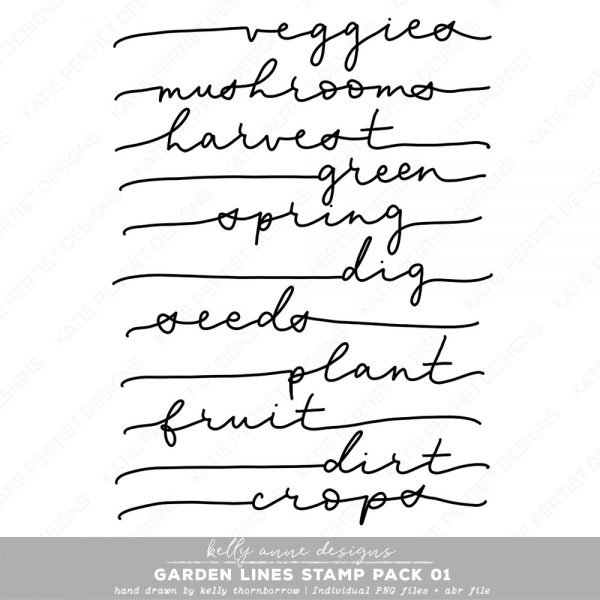 veggies
mushrooms
harvest
green
spring
dig
seeds
plant
fruit
dirt
crops
kelly anne designs
GARDEN LINES STAMP PACK 01
hand drawn by kelly thornborrow | Individual PNG files + abr file
KATIE PERTIET DESIGNS